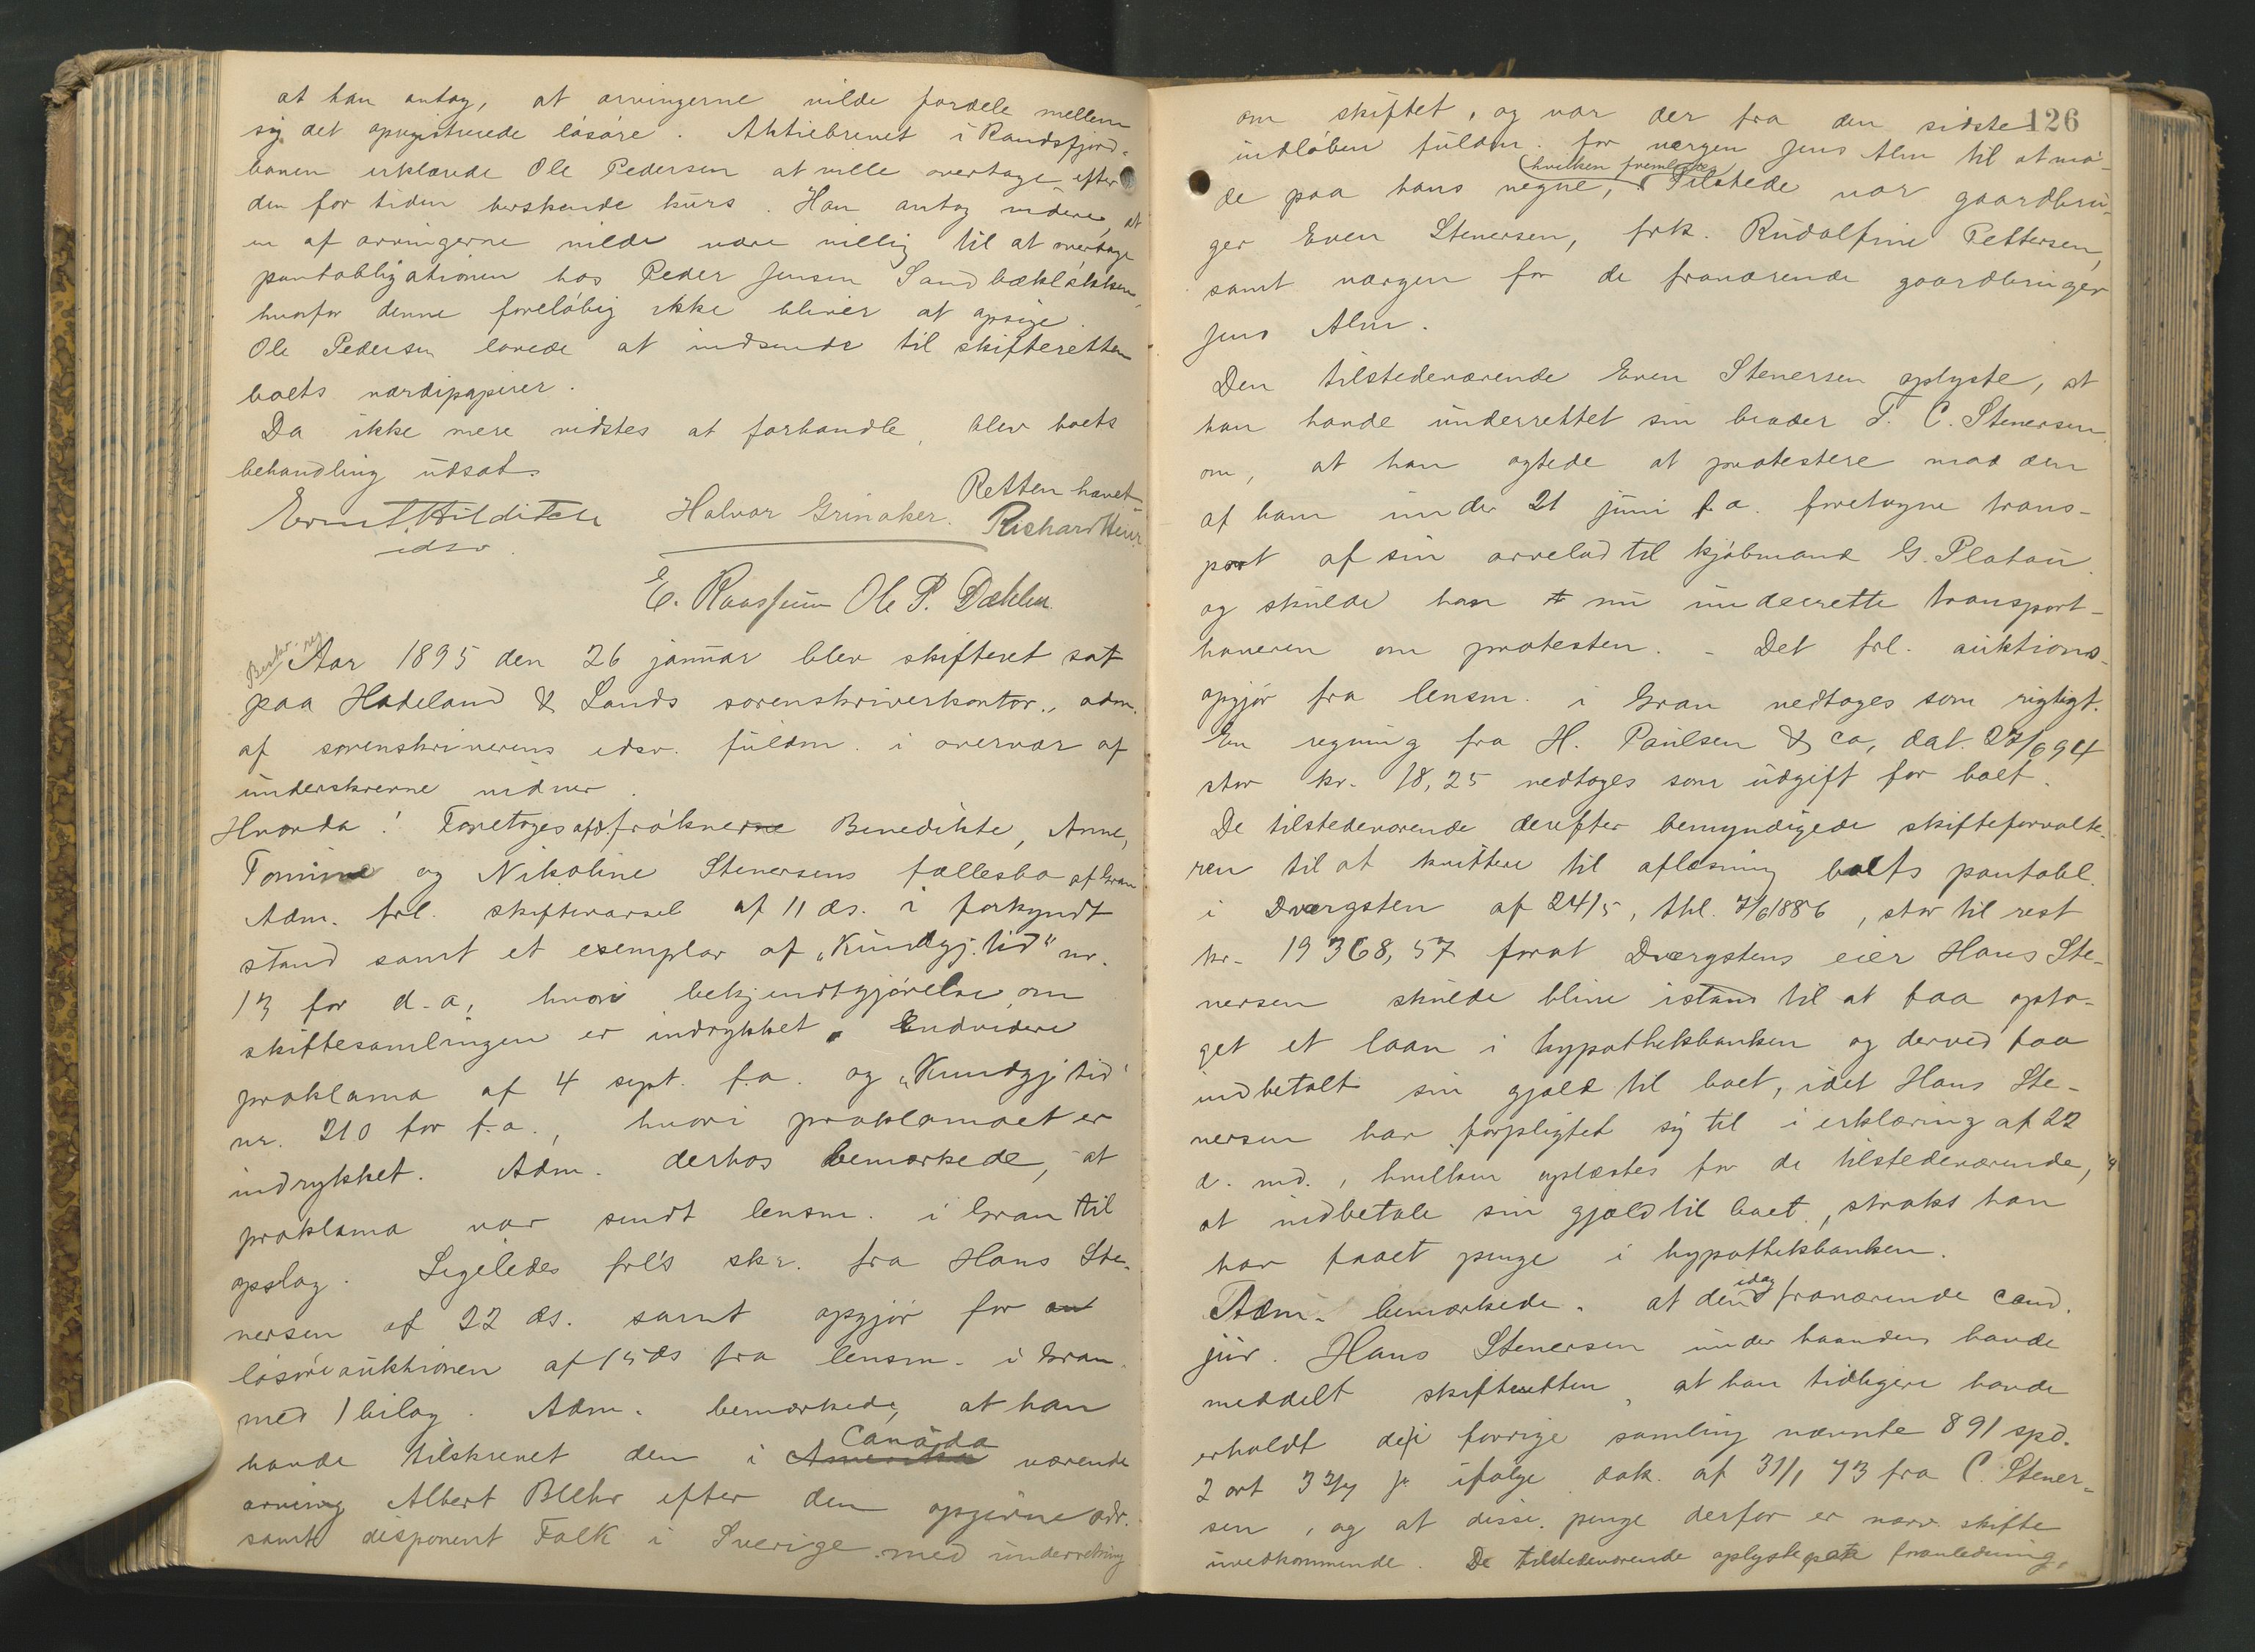 at han antog, at arvingerne vilde fordele mellem
sig det opregistrerede løsøre. Aktiebrevet i Randsfjord-
banen erklærede Ole Pedersen at ville overtage efter
den for tiden herskende kurs. Han antog videre, at
en af arvingerne vilde være villig til at overtage
pantobligationen hos Peder Jensen Sandbækløkken,
hvorfor denne foreløbig ikke bliver at opsige.
Ole Pedersen lovede at indsende til skifteretten
boets værdipapirer.
Da ikke mere vidstes at forhandle, blev boets
behandling udsat.
Retten hævet
Ernst Hilditch Halvor Grinaker. Richard
edsv.
E. Raassum Ole P. Dæhlen.
Beskr. ny
Aar 1895 den 26 januar blev skifteret sat
paa Hadeland & Lands sorenskriverkontor, adm.
af sorenskriverens edsv. fuldm. i overvær af
underskrevne vidner.
Hvorda! Foretoges afd. frøknerne Benedikte, Anne,
Tomine og Nikoline Stenersens fællesbo af Gran
Adm. frl. skiftevarsel af 11 ds. i forkyndt
stand samt et exemplar af „Kundgj. tid" nr.
13 for d.a., hvori bekjendtgjørelse om
skiftesamlingen er indrykket. Endvidere
proklama af 4 sept. f.a. og „Kundgj tid"
nr. 210 for f.a., hvori proklamaet er
indrykket. Adm. derhos bemærkede, at
proklama var sendt lensm. i Gran til
opslag. Ligeledes frl's skr. fra Hans Ste-
nersen af 22 ds. samt opgjør for au
løsøreauktionen af 15 ds fra lensm. i Gran
med 1 bilag. Adm. bemærkede, at han
Canada
havde tilskrevet den i Amerika værende
arving Albert Blehr efter den opgivne adr.
samt disponent Falk i Sverige med underretning
126
om skiftet, og var der fra den sidste
indløben fuldm. for værgen Jens Alm til at mø-
hvilken fremlagdes
de paa hans vegne, Tilstede var gaardbru-
ger Even Stenersen, frk. Rudolfine Pettersen,
samt værgen for de fraværende gaardbruger
Jens Alm.
Den tilstedeværende Even Stenersen oplyste, at
han havde underrettet sin broder T. C. Stenersen
om, at han agtede at protestere mod den
af ham under 21 juni f.a. foretagne trans-
port af sin arvelod til kjøbmand G. Platou
og skulde han nu underrette transport-
haveren om protesten. - Det frl. auktions-
opgjør fra lensm. i Gran vedtoges som rigtigt.
En regning fra H. Paulsen & co, dat. 27/6 94
stor kr. 18,25 vedtoges som udgift for boet.
De tilstedeværende derefter bemyndigede skifteforvalte-
ren til at kvittere til aflæsning boets pantobl.
i Dvergsten af 24/5, thl. 7/6 1886, stor til rest
kr. 19 368,57 forat Dvergstens eier Hans Ste-
nersen skulde blive istand til at faa opta-
get et laan i hypothekbanken og derved faa
indbetalt sin gjæld til boet, idet Hans Ste-
nersen har forpligtet sig til i erklæring af 22
d. md., hvilken oplæstes for de tilstedeværende,
at indbetale sin gjæld til boet, straks han
har faaet penge i hypothekbanken.
idag
Adm. bemærkede. at den fraværende cand.
jur. Hans Stenersen under haanden havde
meddelt skifteretten, at han tidligere havde
erholdt de i forrige samling nævnte 891 spd.
2 ort 3 3/4 s. ifølge dok. af 31/1 73 fra C. Stener-
sen, og at disse penge derfor er nærv. skifte
uvedkommende. De tilstedeværende oplyste paa foranledning,